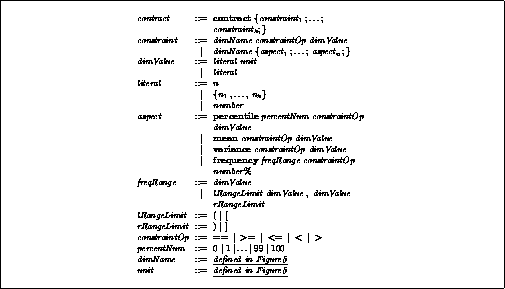 contract ::= contract {constraint₁ ;...;
constraintₙ; }
constraint ::= dimName constraintOp dimValue
| dimName {aspect₁ ;...; aspectₙ; }
dimValue ::= literal unit
| literal
literal ::= n
| {n₁ ,..., nₙ}
| number
aspect ::= percentile percentNum constraintOp
dimValue
| mean constraintOp dimValue
| variance constraintOp dimValue
| frequency freqRange constraintOp
number%
freqRange ::= dimValue
| lRangeLimit dimValue , dimValue
rRangeLimit
lRangeLimit ::= ( | [
rRangeLimit ::= ) | ]
constraintOp ::= == | >= | <= | < | >
percentNum ::= 0 | 1 | ... | 99 | 100
dimName ::= defined in Figure 5
unit ::= defined in Figure 5